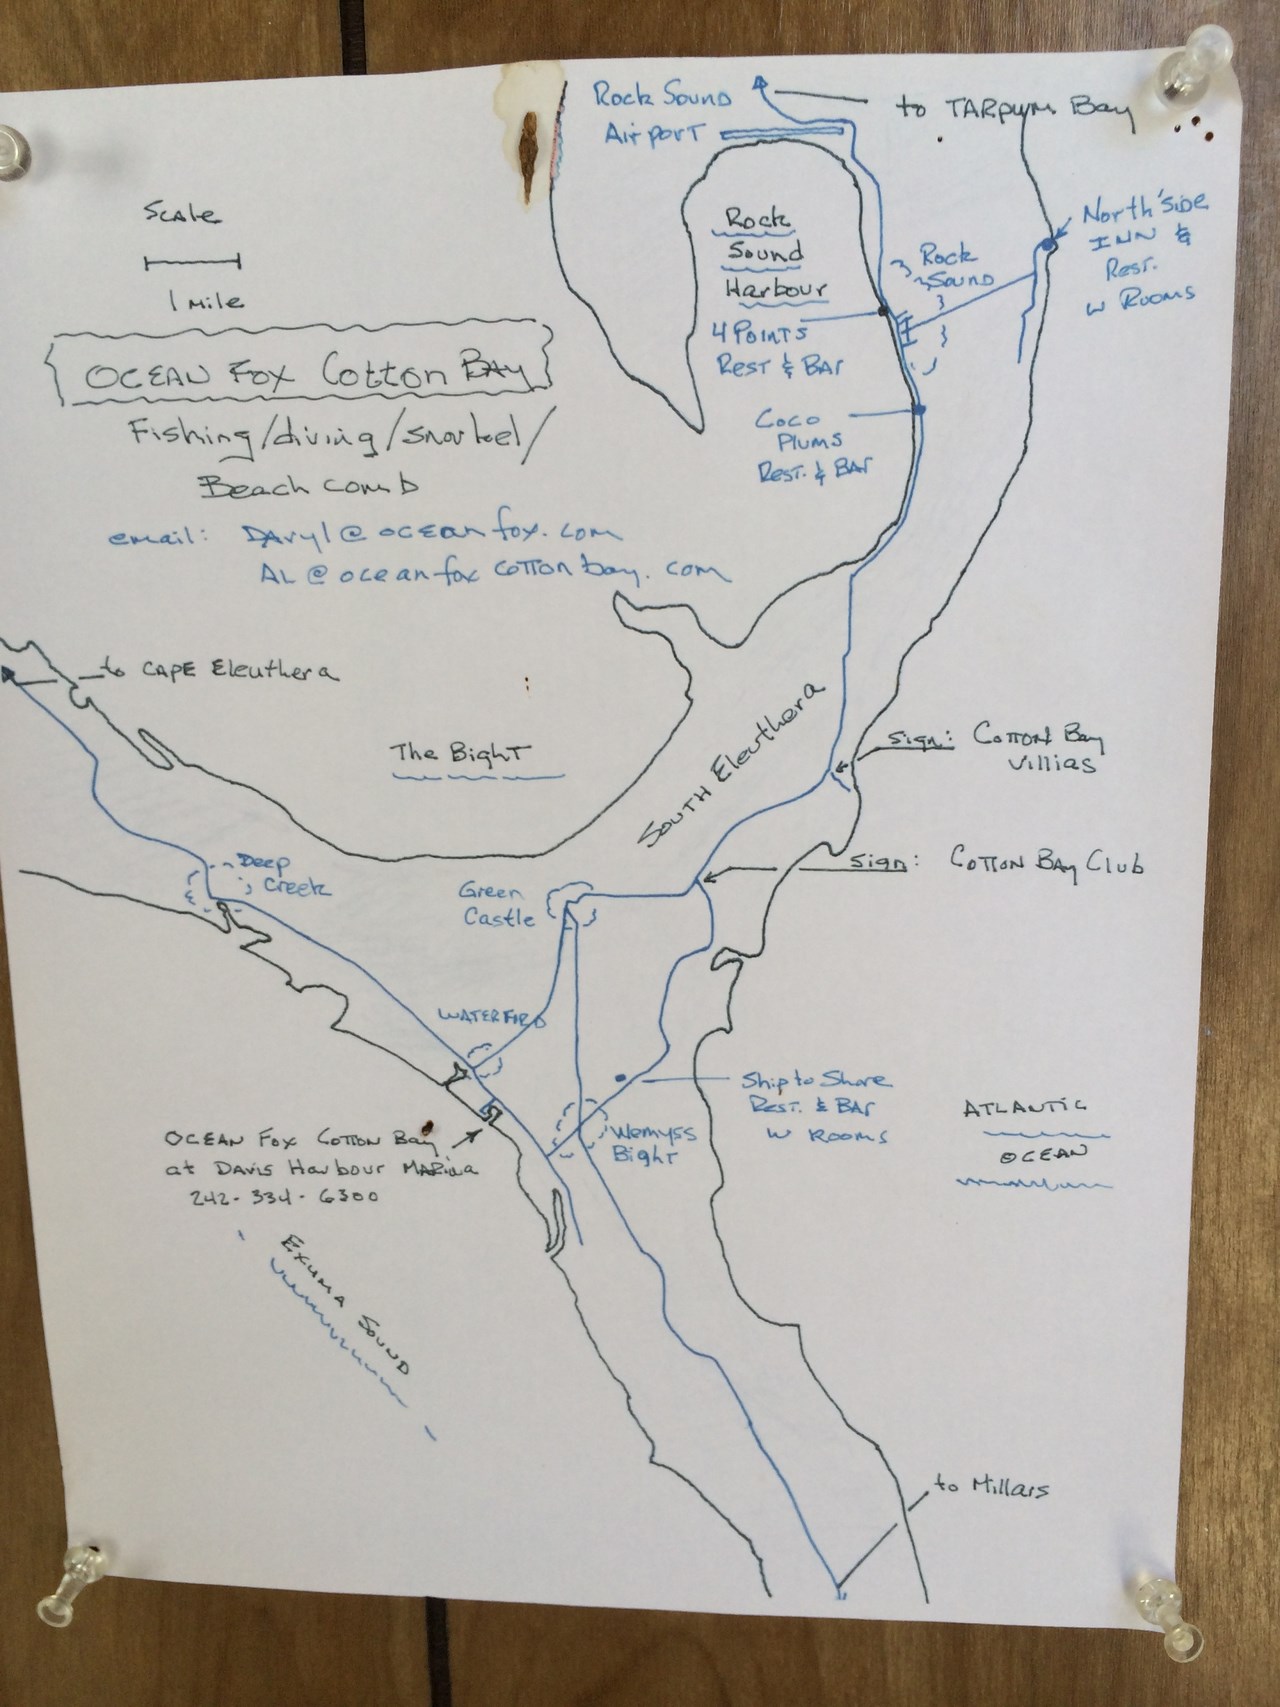 Rock Sound
Airport
to TARPUM Bay
Scale
1 Mile
Rock
Sound
Harbour
4 Points
Rest & Bar
Rock
Sound
North'side
INN &
Rest.
w Rooms
OCEAN Fox Cotton Bay
Fishing/diving/snorkel/
Beach comb
email: Daryl@oceanfox.com
AL@oceanfoxcottonbay.com
Coco
Plums
Rest. & Bar
to CAPE Eleuthera
The Bight
South Eleuthera
sign: Cotton Bay
Villias
sign: Cotton Bay Club
Deep
Creek
Green
Castle
WATERFORD
Ship to Shore
Rest. & Bar
w Rooms
Wemyss
Bight
ATLANTIC
OCEAN
OCEAN Fox Cotton Bay
at DAVIS Harbour MARina
242-334-6300
Exuma Sound
to Millars